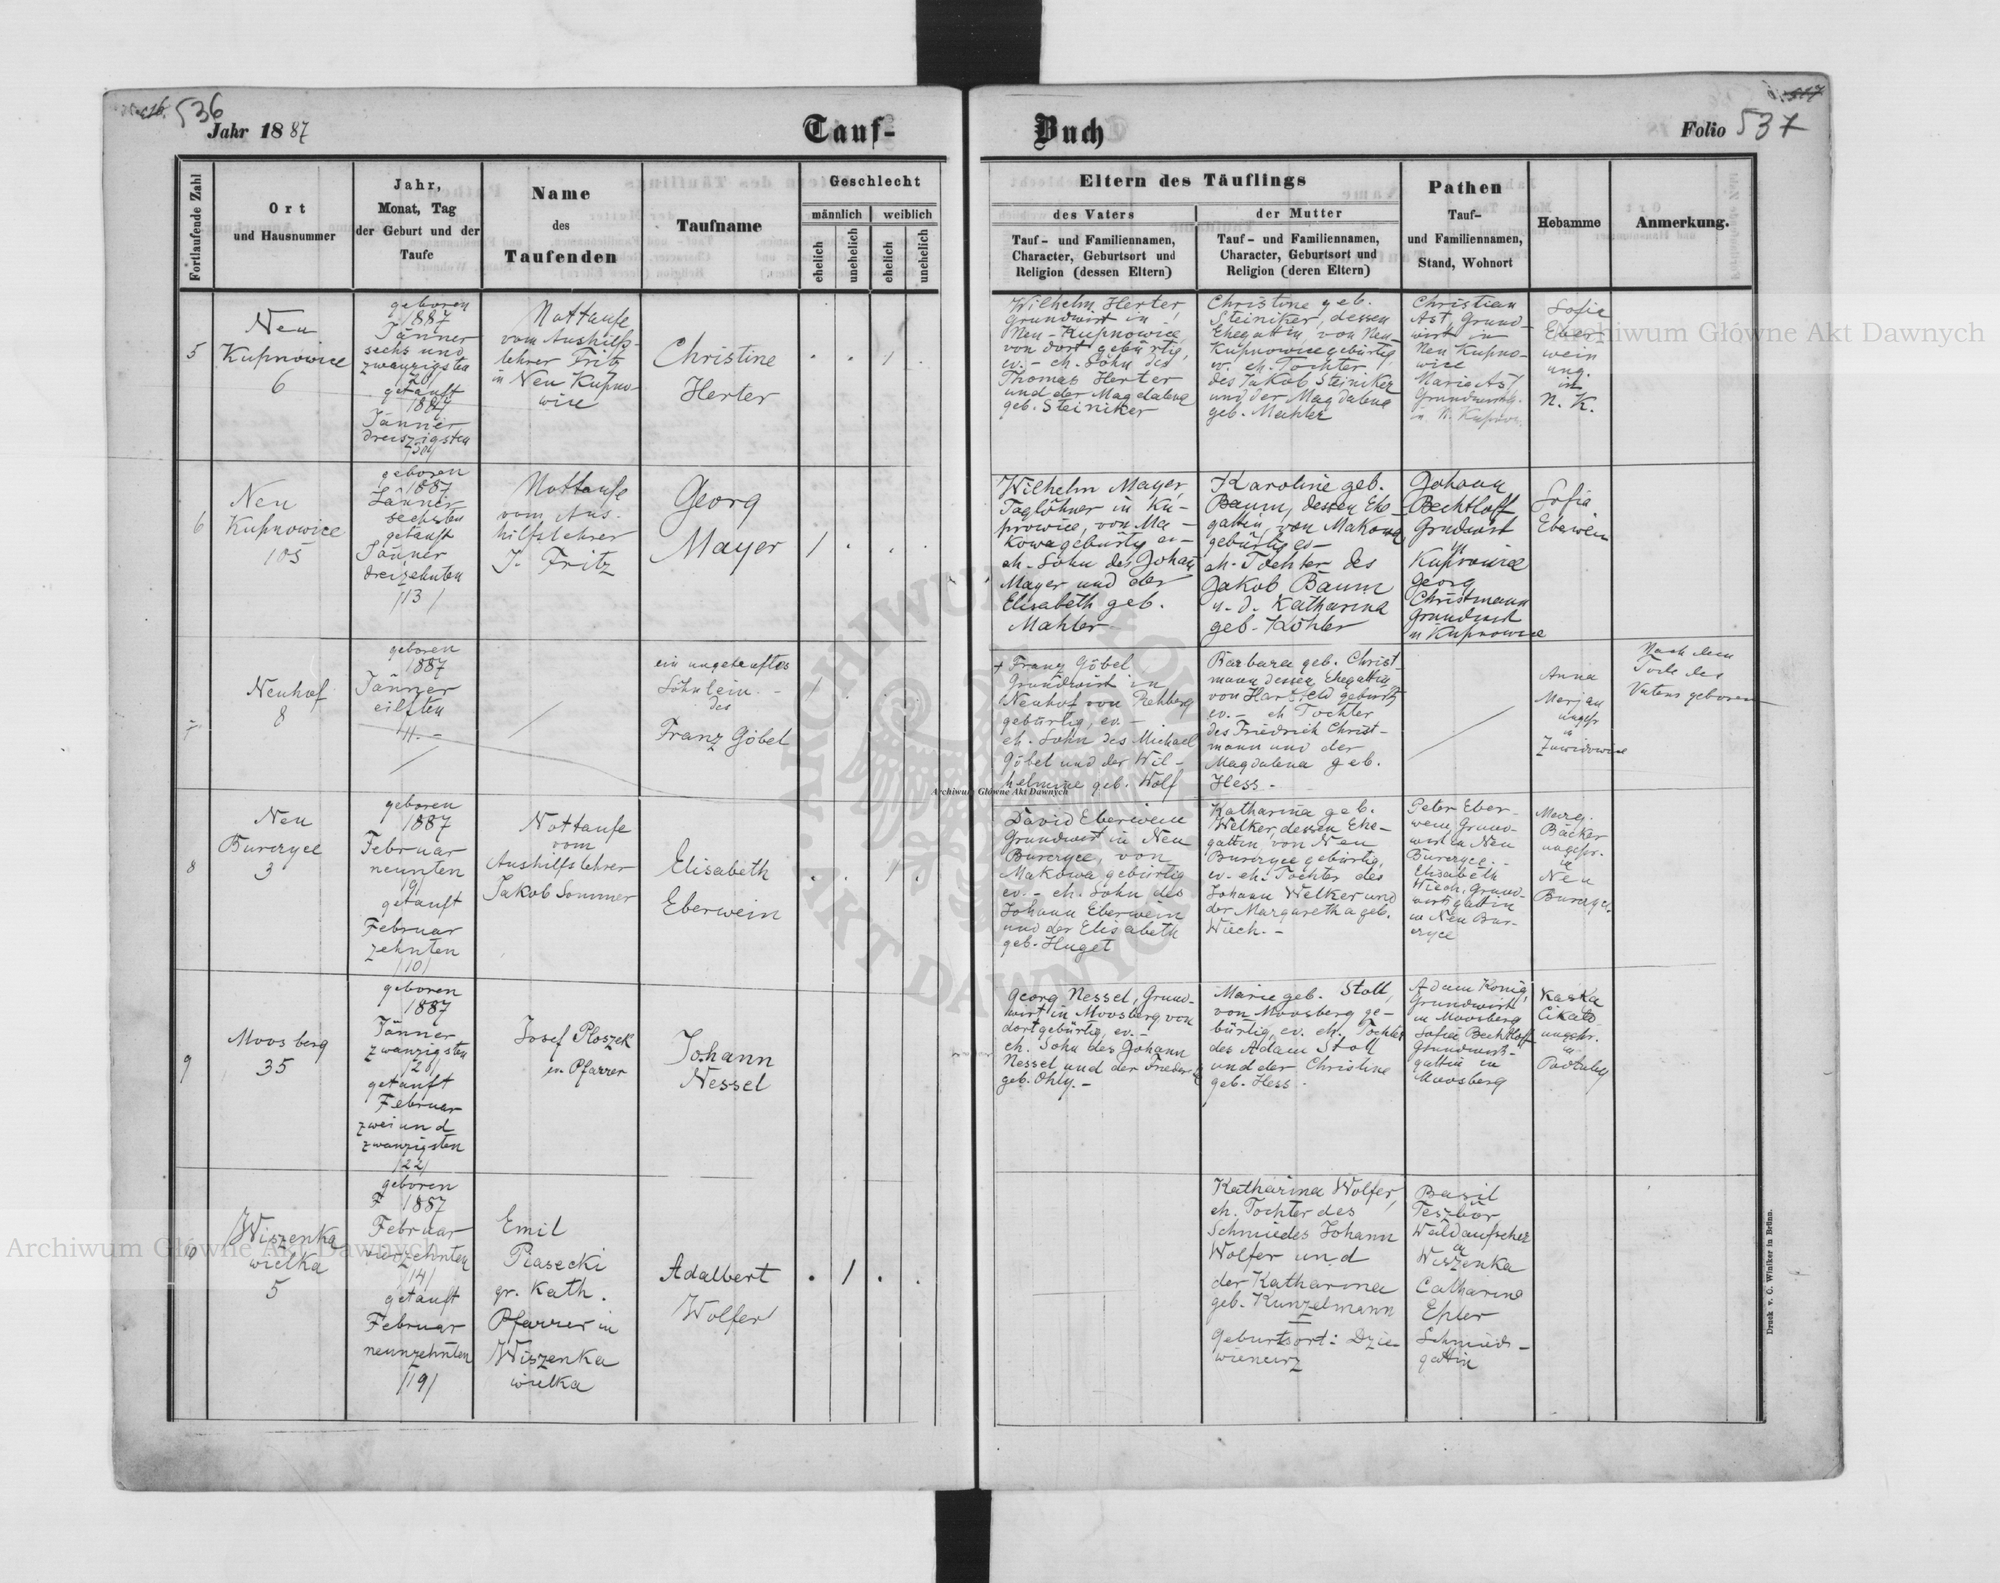 536
Jahr 1887
Tauf-
Buch
Folio 537
Fortlaufende Zahl
Ort
und Hausnummer
Jahr,
Monat, Tag
der Geburt und der
Taufe
Name
des
Taufenden
Taufname
Geschlecht
männlich
weiblich
ehelich
unehelich
ehelich
unehelich
Eltern des Täuflings
des Vaters
Tauf- und Familiennamen,
Character, Geburtsort und
Religion (dessen Eltern)
der Mutter
Tauf- und Familiennamen,
Character, Geburtsort und
Religion (deren Eltern)
Pathen
Tauf-
und Familiennamen,
Stand, Wohnort
Hebamme
Anmerkung.
5
Neu
Kupnowice
6
geboren
1887
Jänner
sechs und
zwanzigsten
26
getauft
1887
Jänner
dreiszigsten
/30/
Nottaufe
vom Aushilfs-
lehrer Fritz
in Neu Kupno-
wice
Christine
Herter
1
Wilhelm Herter,
Grundwirt in
Neu-Kupnowice
von dort gebürtig,
ev. - eh. Sohn des
Thomas Herter
und der Magdalena
geb. Steiniker
Christine geb.
Steiniker, dessen
Ehegattin, von Neu-
Kupnowice gebürtig
ev. eh. Tochter
des Jakob Steiniker
und der Magdalena
geb. Mahler
Christian
Ast, Grund-
wirt in
Neu Kupno-
wice
Marie Ast
in N. Kupnow.
Sofie
Eber-
wein
ung.
in
N. K.
6
Neu
Kupnowice
105
geboren
1887
Jänner
sechsten
getauft
Jänner
dreizehnten
/13/
Nottaufe
vom Aus-
hilfslehrer
J. Fritz
Georg
Mayer
1
Wilhelm Mayer,
Taglöhner in Ku-
pnowice, von Ma-
kowa gebürtig ev-
eh. Sohn des Johann
Mayer und der
Elisabeth geb.
Mahler
Karoline geb.
Baum, dessen Ehe-
gattin, von Makowa
gebürtig ev-
eh. Tochter des
Jakob Baum
u. d. Katharina
geb. Köhler
Johann
Bechtloff
Grundwirt
in
Kupnowice
Georg
Christmann
Grundwirt
in Kupnowice
Sofia
Eberwein
7
Neuhof
8
geboren
1887
Jänner
eilften
11. -
ein ungetauftes
Söhnlein -
des
Franz Göbel
1
+ Franz Göbel
Grundwirt in
Neuhof von Rehberg
gebürtig, ev. -
eh. Sohn des Michael
Göbel und der Wil-
helmine geb. Wolf
Barbara geb. Christ-
mann dessen Ehegattin
von Hartfeld gebürtig
ev. - eh Tochter
des Friedrich Christ-
mann und der
Magdalena geb.
Hess -
Anna
Merjan
ungepr
in
Zawidowice
Nach dem
Tode des
Vaters geboren
8
Neu
Burczyce
3
geboren
1887
Februar
neunten
/9/
getauft
Februar
zehnten
/10/
Nottaufe
vom
Aushilfslehrer
Jakob Sommer
Elisabeth
Eberwein
1
David Eberwein
Grundwirt in Neu
Burczyce, von
Makowa gebürtig
ev. - eh. Sohn des
Johann Eberwein
und der Elisabeth
geb. Huget
Katharina geb.
Welker, dessen Ehe-
gattin, von Neu
Burczyce gebürtig,
ev. eh. Tochter des
Johann Welker und
der Margaretha geb.
Wiech. -
Peter Eber-
wein, Grund-
wirt in Neu
Burczyce. -
Elisabeth
Wiech, Grund-
wirtsgattin
in Neu Bur-
czyce
Marg.
Bäcker
ungepr.
in
Neu
Burczyce
9
Moosberg
35
geboren
1887
Jänner
zwanzigsten
/20/
getauft
Februar
zwei und
zwanzigsten
/22/
Josef Ploszek
ev. Pfarrer
Johann
Nessel
Georg Nessel, Grund-
wirt in Moosberg von
dort gebürtig, ev. -
eh. Sohn des Johann
Nessel und der
geb. Ohly. -
Marie geb. Stoll,
von Moosberg ge-
bürtig, ev. eh. Tochter
des Adam Stoll
und der Christine
geb. Hess.
Adam König,
Grundwirt
in Moosberg
Sofie Bechtloff
Grundwirt-
gattin in
Moosberg
Kaska
Cikalo
ungepr.
in
Podluby
10
Wiszenka
wielka
5
geboren
1887
Februar
vierzehnten
/14/
getauft
Februar
neunzehnten
/19/
Emil
Piasecki
gr. Kath.
Pfarrer in
Wiszenka
wielka
Adalbert
Wolfer
1
Katharina Wolfer,
eh. Tochter des
Schmiedes Johann
Wolfer und
der Katharina
geb. Kunzelmann
Geburtsort: Dzie-
wienczy
Basil
Waldaufseher
in
Wiszenka
Catharine
Epler
Schmieds-
gattin
Druck v. C. Winiker in Brünn.
Archiwum Główne Akt Dawnych
Archiwum Główne Akt Dawnych
Archiwum Główne Akt Dawnych